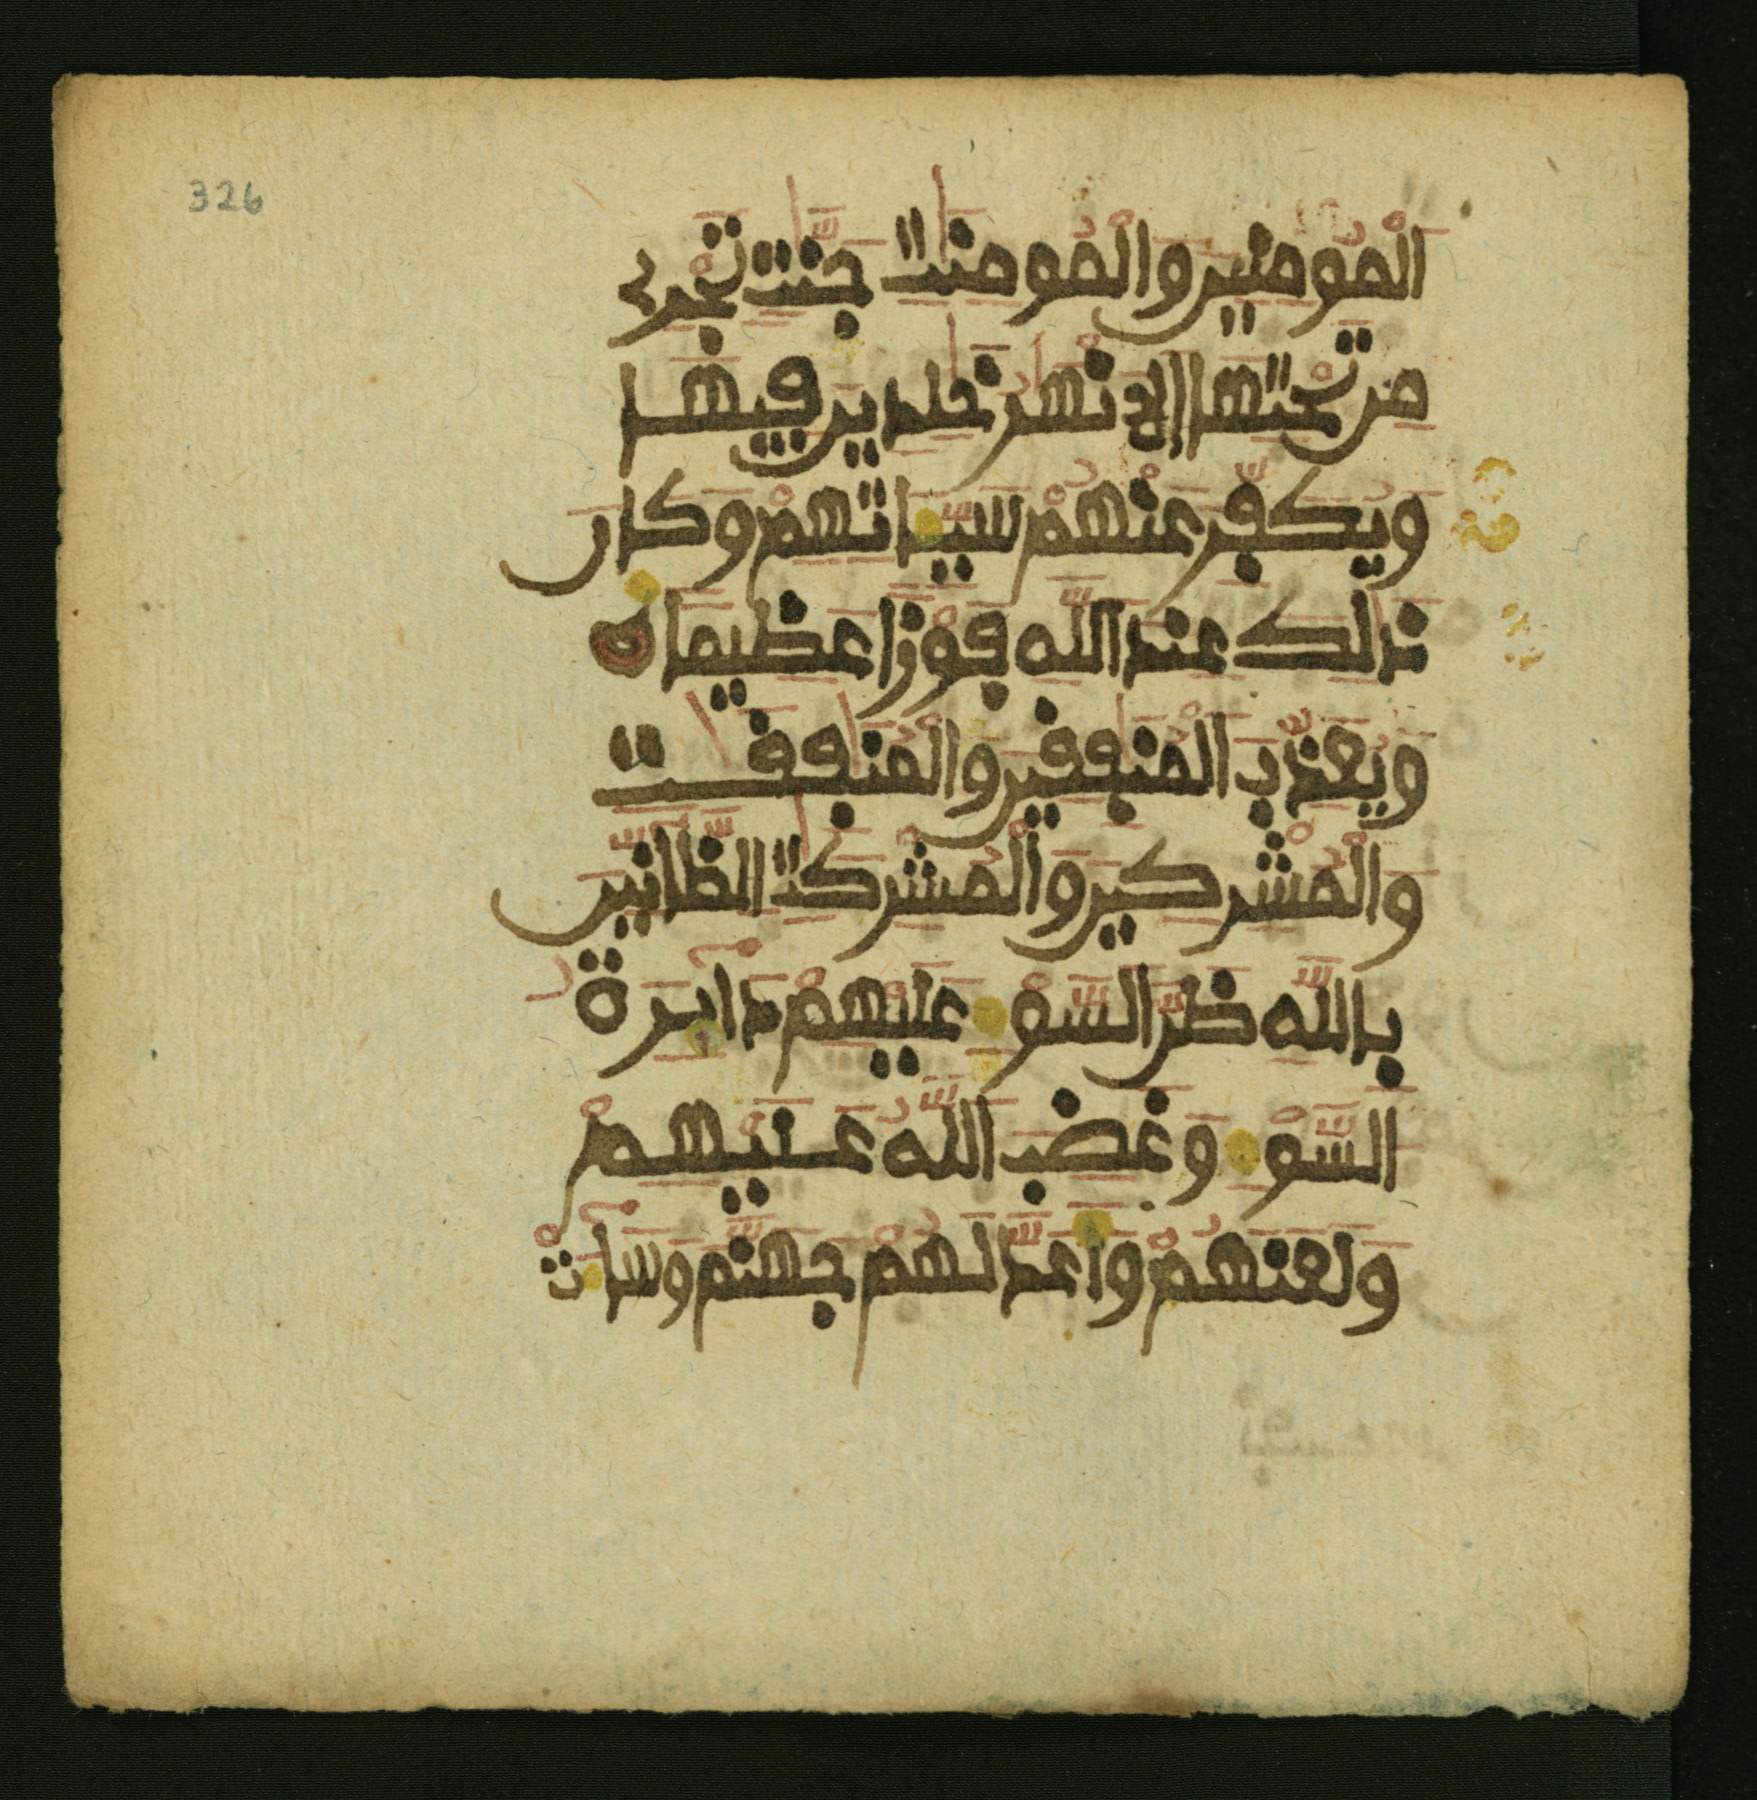 326
الْمُومِنِينَ وَالْمُومِنَٰتِ جَنَّٰتٍ تَجْرِے
مِن تَحْتِهَا اَلَانْهَٰرُ خَٰلِدِينَ فِيهَا
وَيُكَفِّرَ عَنْهُمْ سَيِّـَٔاتِهِمْ وَكَانَ
ذَٰلِكَ عِندَ اَللَّهِ فَوْزًا عَظِيمًا
وَيُعَذِّبَ الْمُنَٰفِقِينَ وَالْمُنَٰفِقَٰتِ
وَالْمُشْرِكِينَ وَالْمُشْرِكَٰتِ الظَّانِّينَ
بِاللَّهِ ظَنَّ السَّوْءِ عَلَيْهِمْ دَآئِرَةُ
السَّوْءِ وَغَضِبَ اللَّهُ عَلَيْهِمْ
وَلَعَنَهُمْ وَأَعَدَّ لَهُمْ جَهَنَّمَ وَسَآءَتْ